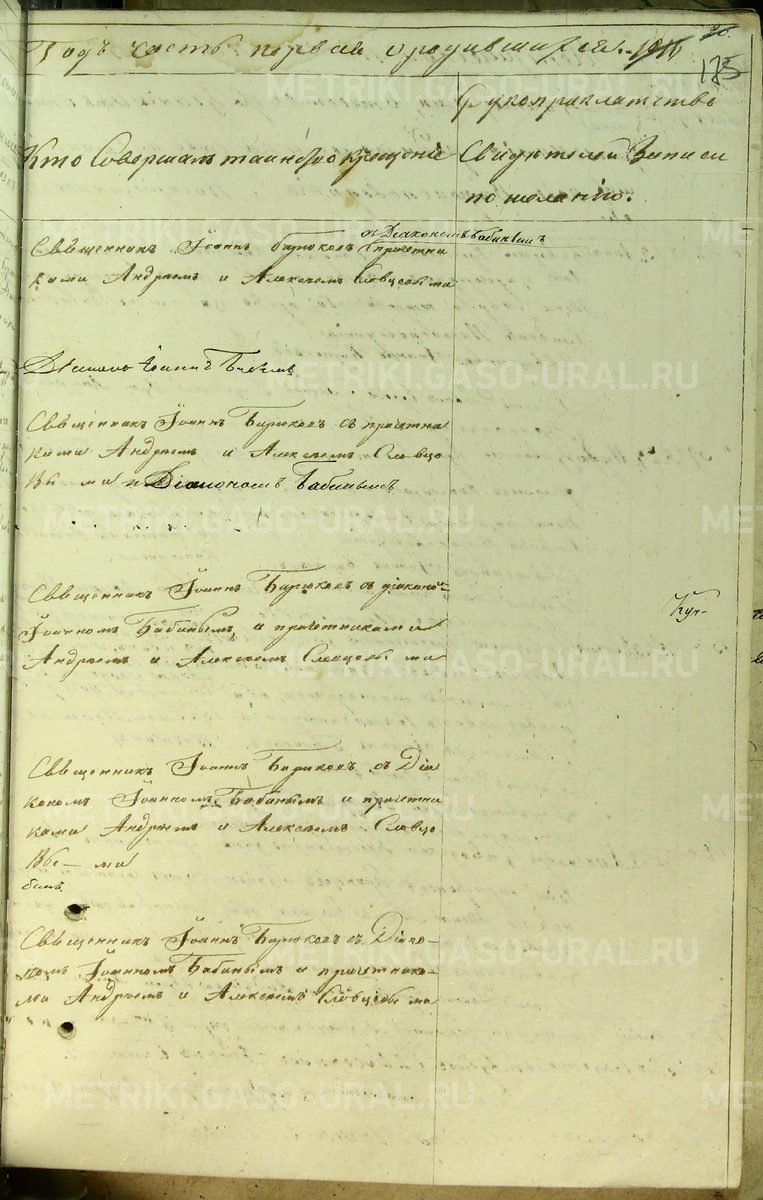 20.
Годъ часть первая о родившихся.
175
Рукоприкладство
Кто Совершалъ таинство крещеніе
Свидѣтелей Записи
по желанію.
съ Діакономъ Бабинымъ
Священникъ Іоаннъ Бирюковъ с причетни
ками Андреемъ и Алексеемъ Словцовыми
Діаконъ Іоаннъ Бабинъ
Священникъ Іоаннъ Бирюковъ съ причетни
ками Андреемъ и Алексеемъ Словцо
вы ми и Діакономъ Бабинымъ
Священникъ Іоаннъ Бирюковъ съ діаконо
Іоанномъ Бабинымъ, и причетниками
Андреемъ и Алексеемъ Словцовы ми
Священникъ Іоаннъ Бирюковъ съ Діа
кономъ Іоанномъ Бабинымъ и причетни
ками Андреемъ и Алексеемъ Словцо
вы — ми
Священникъ Іоаннъ Бирюковъ съ Діако-
номъ Іоанномъ Бабинымъ и причетника-
ми Андреемъ и Алексеемъ Словцовы ми
METRIKI.GASO-URAL.RU